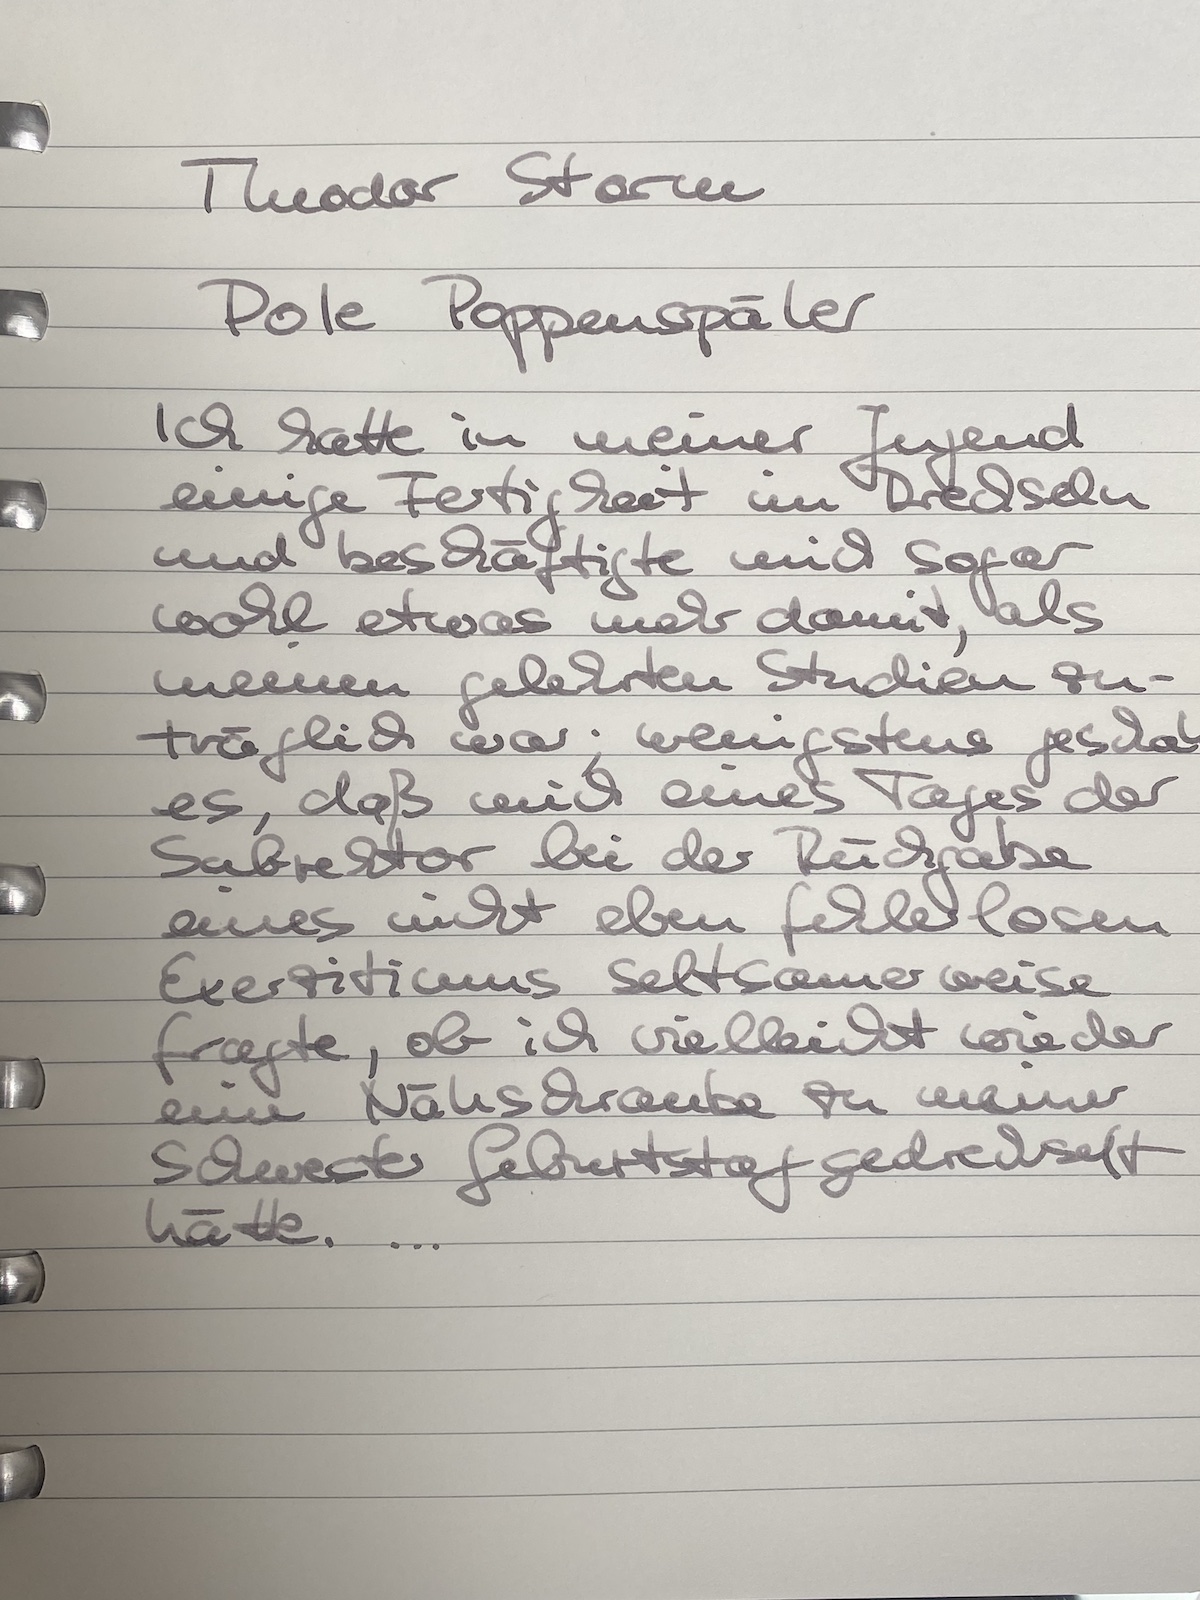 Theodor Storm
Pole Poppenspäler
Ich hatte in meiner Jugend
einige Fertigkeit im Drechseln
und beschäftigte mich sogar
wohl etwas mehr damit, als
meinen gelehrten Studien zu-
träglich war; wenigstens geschah
es, daß mich eines Tages der
Subrektor bei der Rückgabe
eines nicht eben fehlerlosen
Exerzitiums seltsamerweise
fragte, ob ich vielleicht wieder
eine Nähschraube zu meiner
Schwester Geburtstag gedrechselt
hätte. ...